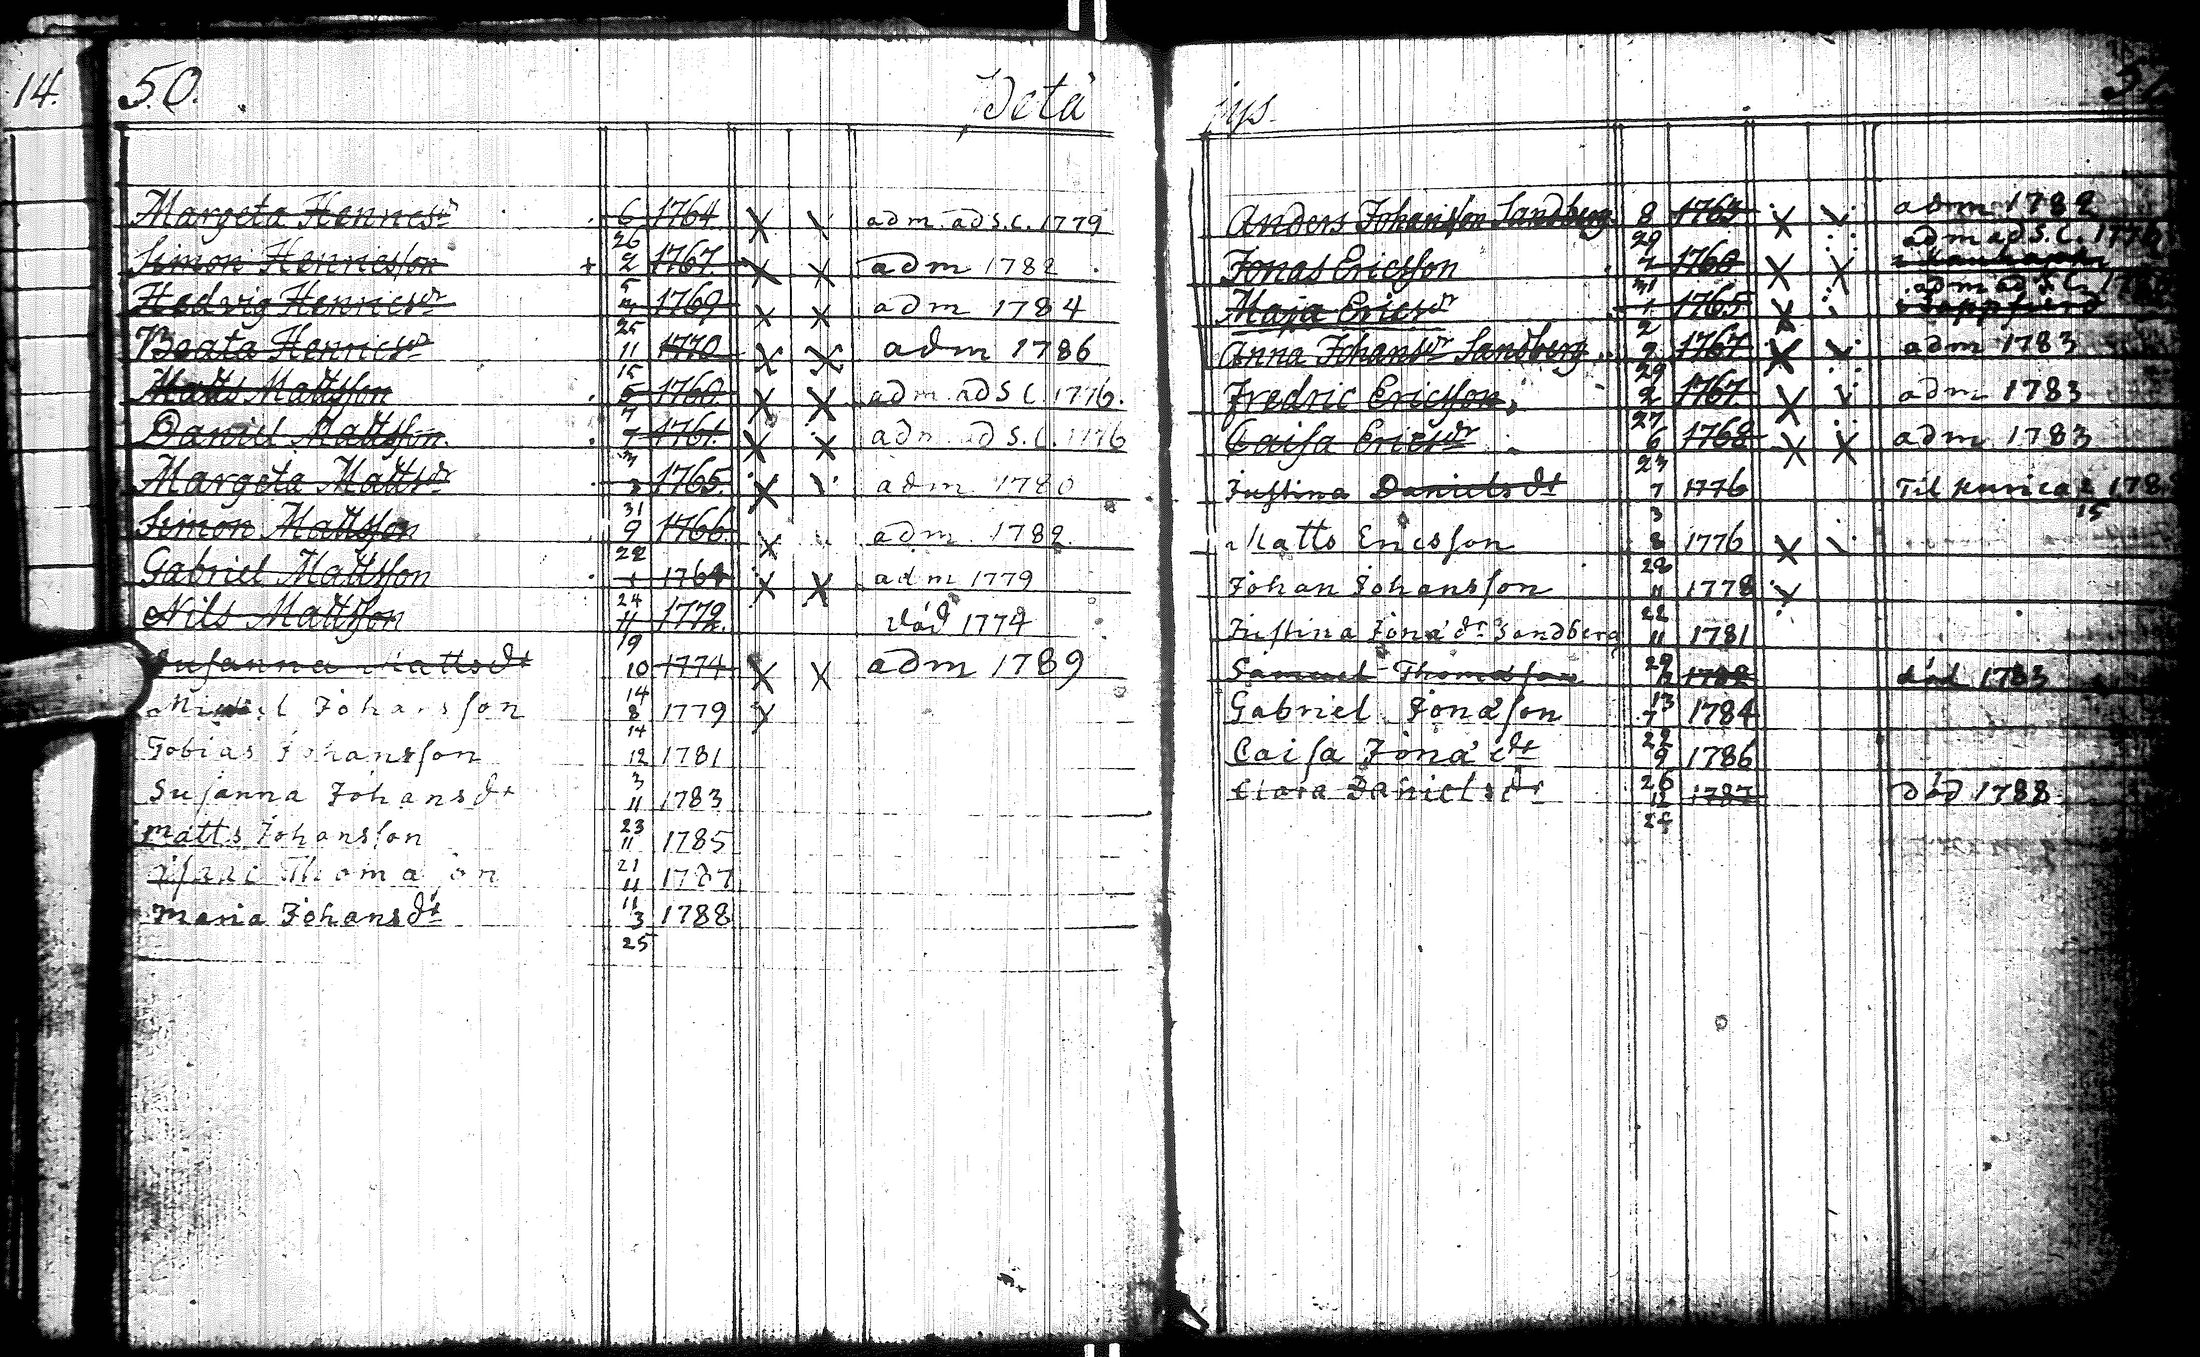 14. 50. Wetä
Margeta Hennesdr 6 1764 X adm. ad S.C. 1779
26
Simon Henricsson + 2 1767 X X adm 1782
5
Hedvig Henricsdr 1769 X X adm 1784
25
Beata Henricsdr 11 1770 X X adm 1786
15
Matts Mattsson 5 1760 X X adm. ad S.C. 1776.
7
Daniel Mattsson 7 1761 X X adm. ad S.C. 1776
3
Margeta Mattsdr 1765 X adm 1780
31
Simon Mattsson 9 1766 X adm. 1782
22
Gabriel Mattsson 1 1764 X X adm 1779
24
Nils Mattsson 11 1772. död 1774
19
Susanna Mattsdt 10 1774 X X adm 1789
14
Johansson 8 1779 X
14
Tobias Johansson 12 1781
3
Susanna Johansdt 11 1783
23
Matts Johansson 11 1785
21
Isaac Thomason 11 1787
11
Maria Johansdt 3 1788
25
jys.
Anders Johansson Sandberg 8 1763 X adm 1782
29 adm ad S.C. 1776
Jonas Ericsson 7 1760 X X
31 adm ad S.C. 17
Maja Ericsdr 1 1765 X
2
Anna Johansdr Sandberg 9 1767 X adm 1783
29
Fredric Ericsson, 2 1767 X adm 1783
27
Caisa Ericsdr 6 1768 X X adm 1783
23
Justina Danielsdt 7 1776 Til 178
3 15
Matts Ericsson 8 1776 X
28
Johan Johansson 11 1778 X
22
Justina Jonadr Sandberg 11 1781
29
Samuel Thomasson 1782 död 1783
13
Gabriel Jonasson 7 1784
22
Caisa Jonadt 9 1786
26
Clara Danielsdr 12 1787 död 1788
25